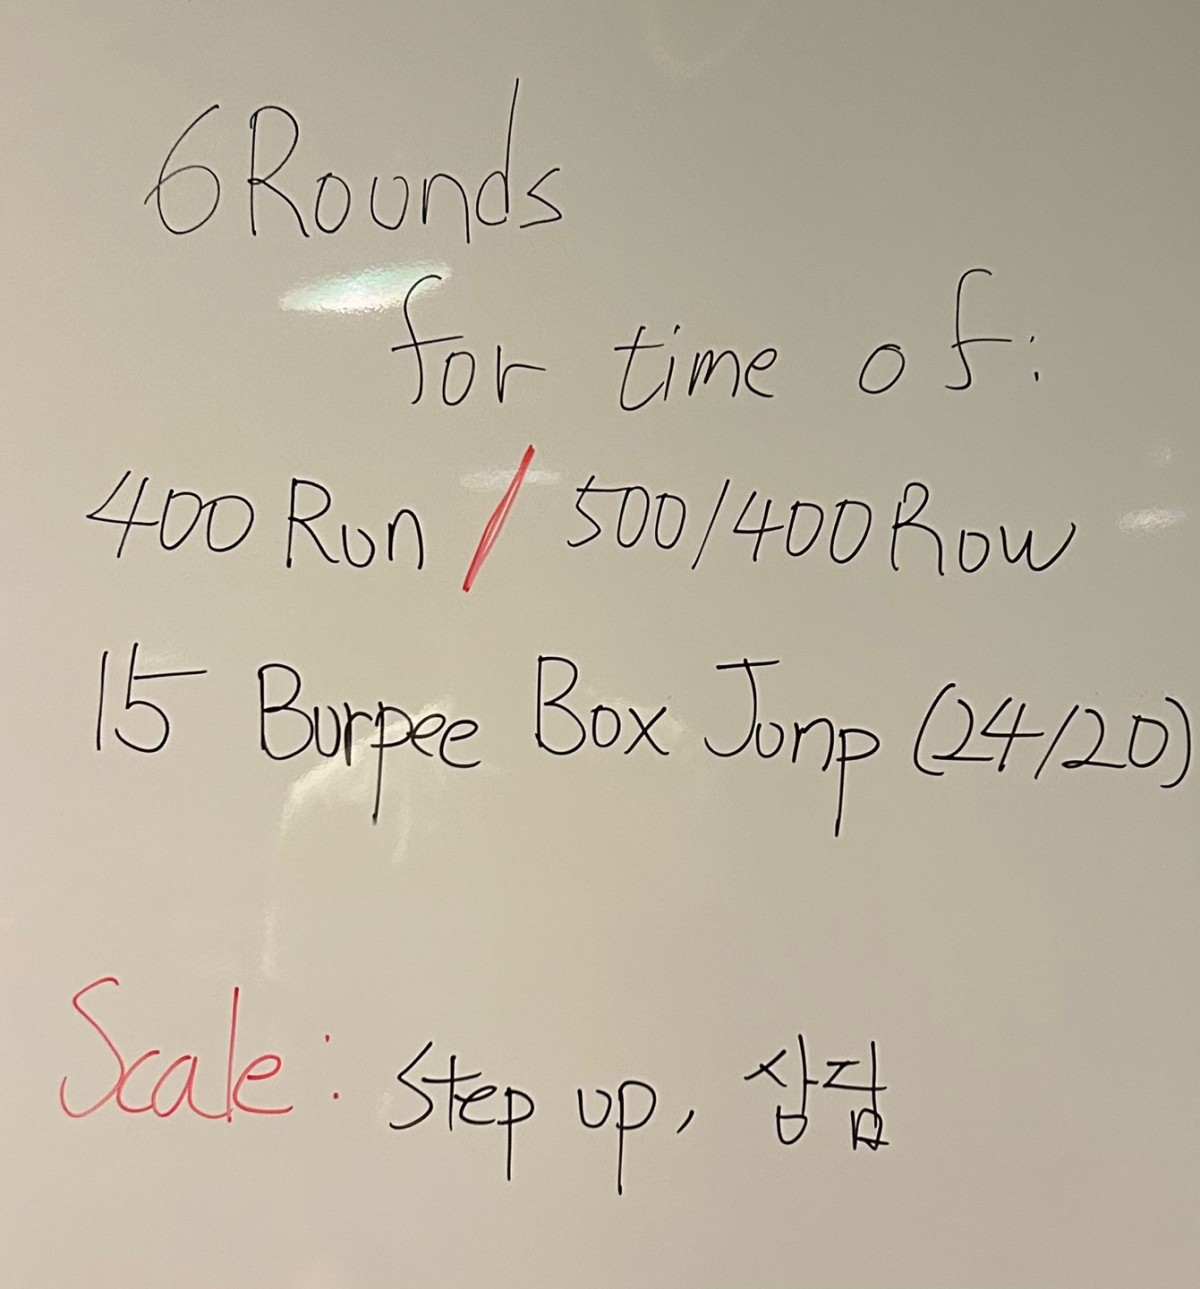 6 Rounds
for time of:
400 Run / 500/400 Row
15 Burpee Box Jump (24/20)
Scale: Step up, 상집